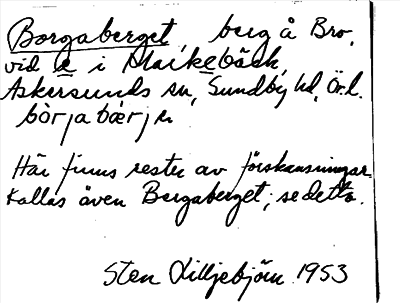 Borgaberget berg å Bro,
vid e i Markebäck,
Askersunds sn, Sundby hd, Ör.l.
bòrjabærjet
Här finns rester av förskansningar.
Kallas även Bergaberget; se detta.
Sten Lilljebjörn 1953